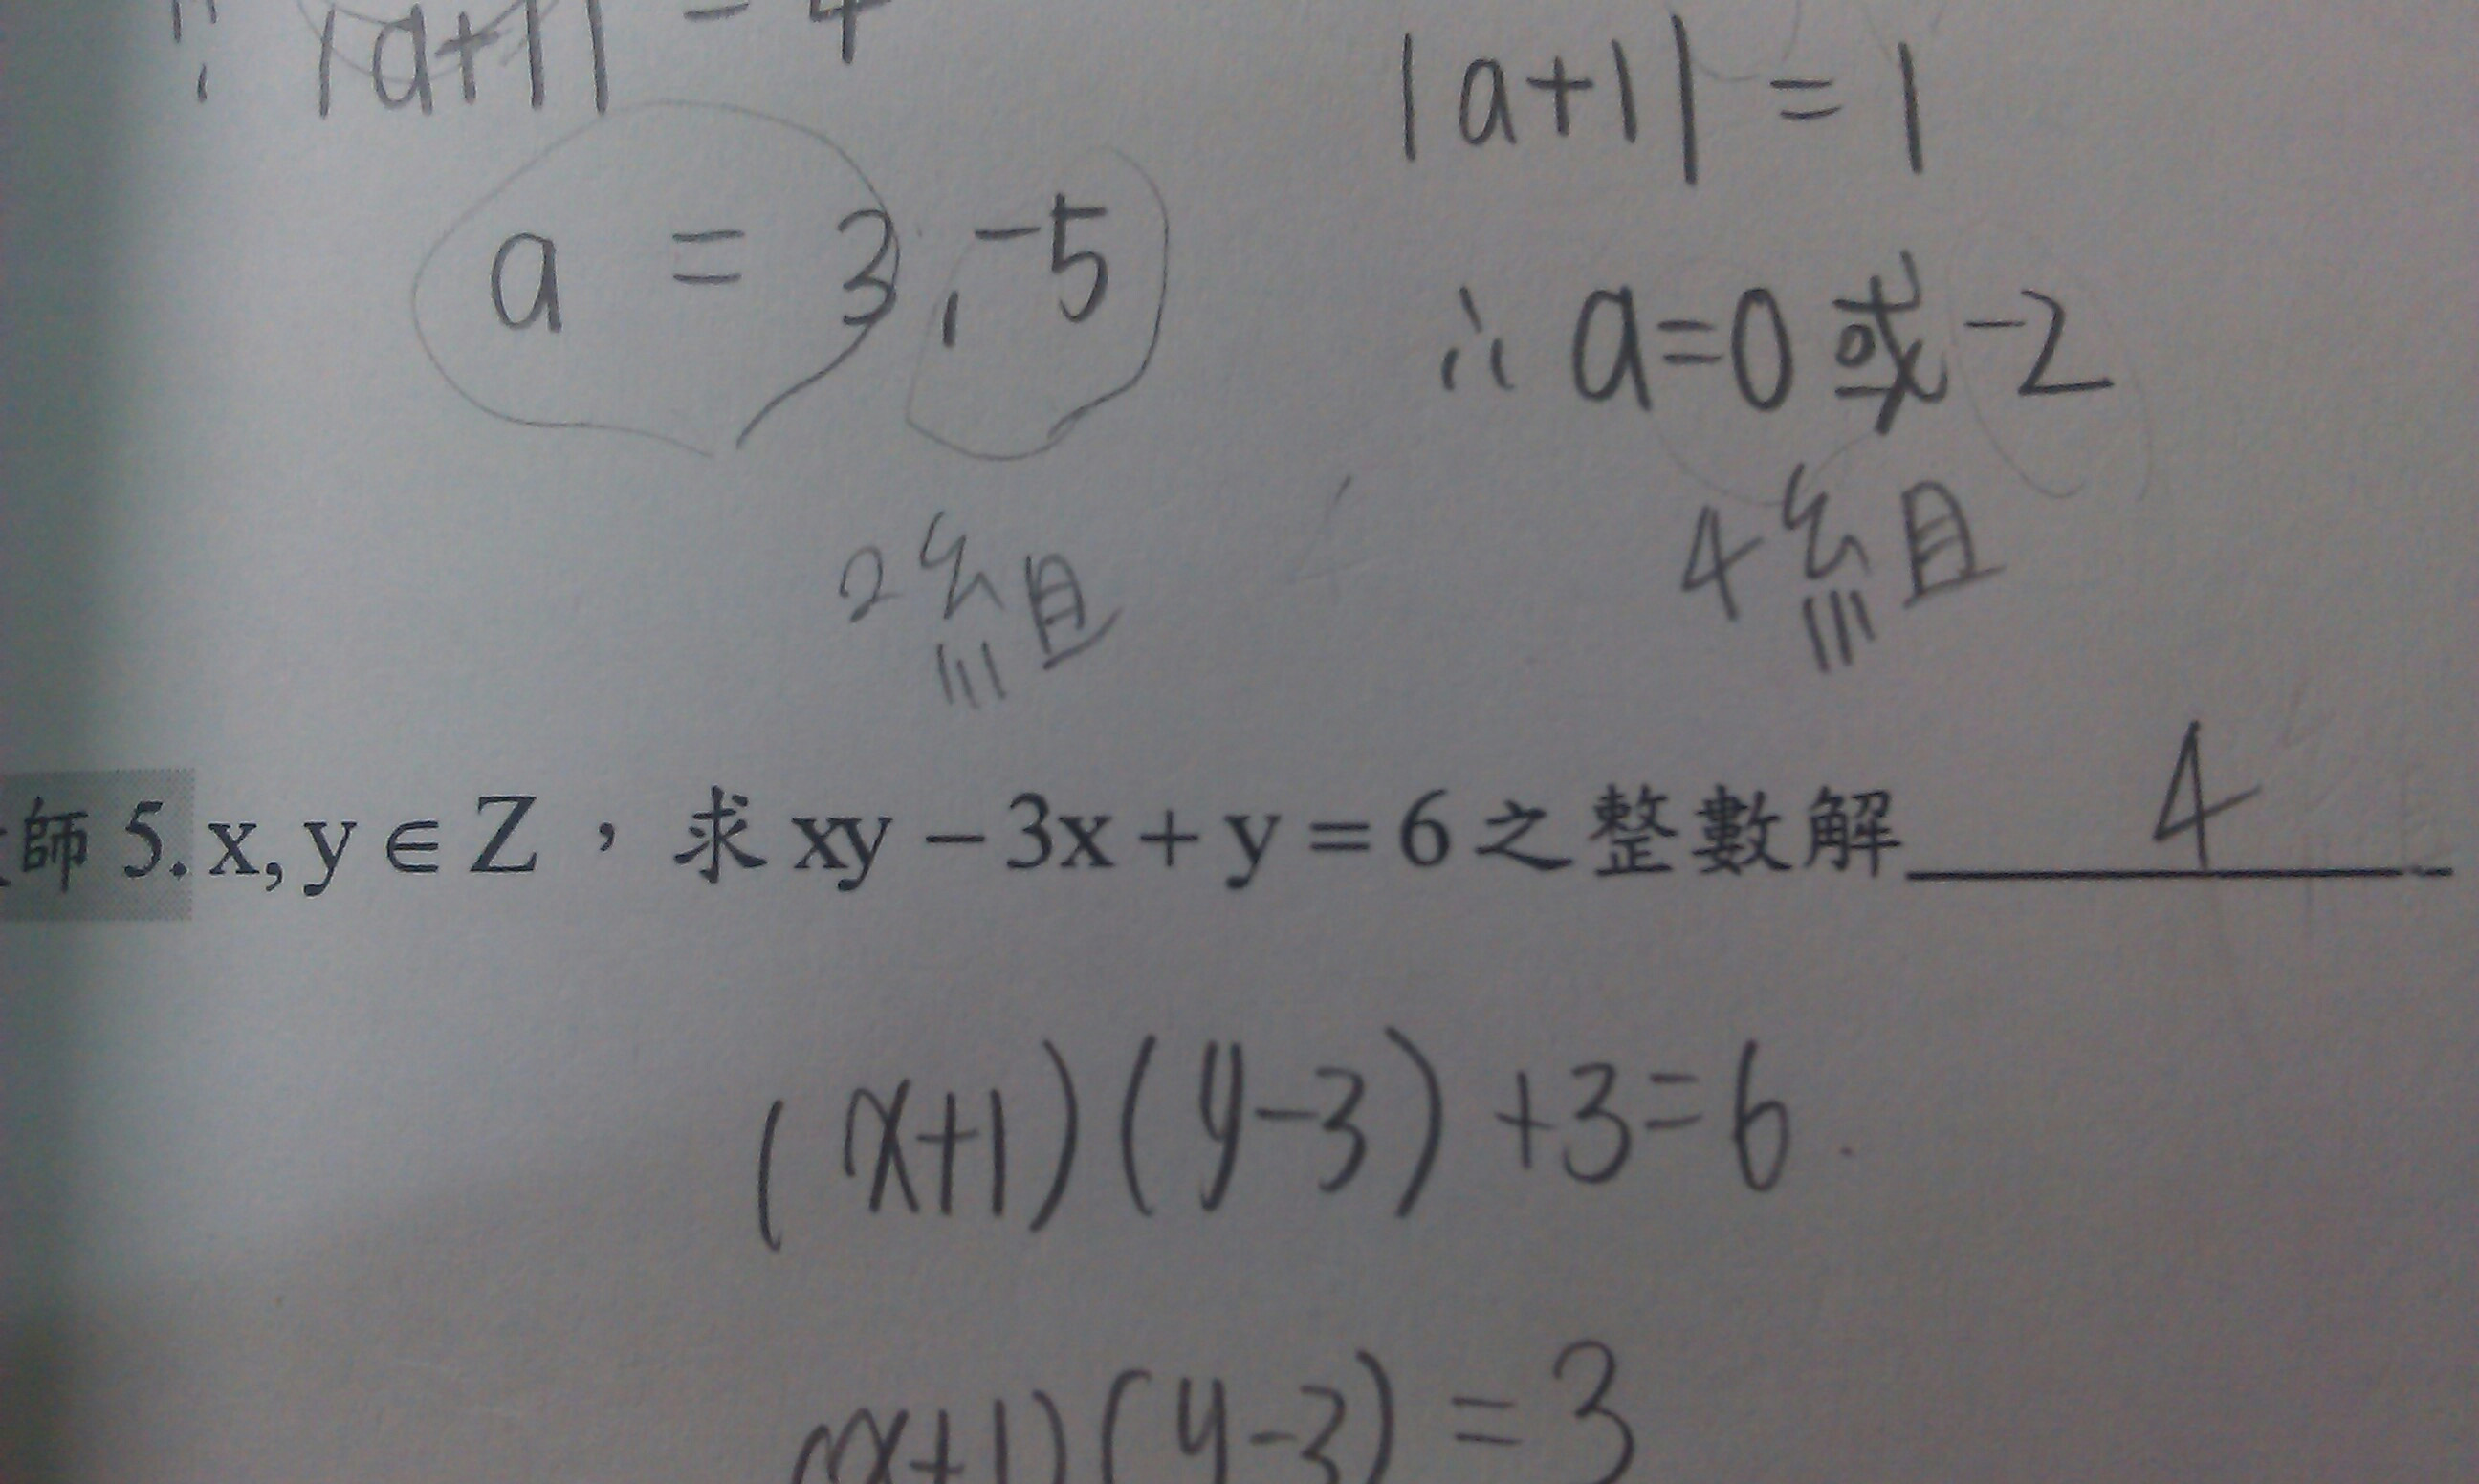 |a+1| = 4
a = 3, -5
2組
|a+1| = 1
∴ a=0 或 -2
4組
師 5. x, y ∈ Z，求 xy − 3x + y = 6 之整數解 4
(x+1)(y-3)+3=6
(x+1)(y-3)=3